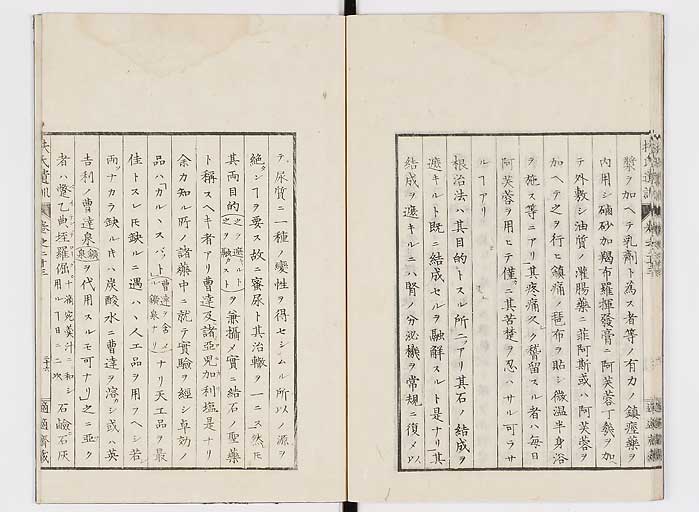 漿ヲ加ヘテ乳劑ト為ス者等ノ有力ノ鎮痙藥ヲ
内用シ硇砂加羯布羅揮發膏ニ阿芙蓉丁幾ヲ加
テ外敷シ油質ノ灌腸藥ニ菲阿斯或ハ阿芙蓉ヲ
加ヘテ之ヲ行ヒ鎮痛ノ琶布ヲ貼シ微温半身浴
ヲ施ス等ニアリ其疼痛久ク稽留スル者ハ毎日
阿芙蓉ヲ用ヒテ僅ニ其苦楚ヲ忍ハサル可ラサ
ルヿアリ
根治法ハ其目的トスル所二ツアリ其石ノ結成ヲ
遮キルト既ニ結成セルヲ融解スルト是ナリ其
結成ヲ遮キルニハ腎ノ分泌機ヲ常規ニ復メ以
テ尿質ニ一種ノ變性ヲ得セシムル所以ノ源ヲ
絶ツヿヲ要ス故ニ蜜尿ト其治轍ヲ一ニス然𪜈
其両目的之ヲ遮ルト之ヲ融ストヲ兼攝メ實ニ結石ノ聖藥
ト稱スヘキ者アリ曹達及諸亞兒加利塩是ナリ
余カ知ル所ノ諸藥中ニ就テ實驗ヲ經シ卓効ノ
品ハカルヽスバット曹達ヲ含メル鑛泉ナリナリ天工品ヲ最
佳トスレ𪜈缺ルニ遇ハヽ人工品ヲ用フヘシ若
両ナカラ缺ル𪜈ハ炭酸水ニ曹達ヲ溶シ或ハ英
吉利ノ曹達泉鑛泉ヲ代用スルモ可ナリ之ニ亞ク
者ハ鼈乙典垤羅倔十滴宛羮汁ニ和シ用ルヿ日ニ二次石鹼石灰
扶氏遺訓 卷之二十三
二十六 適適齋藏